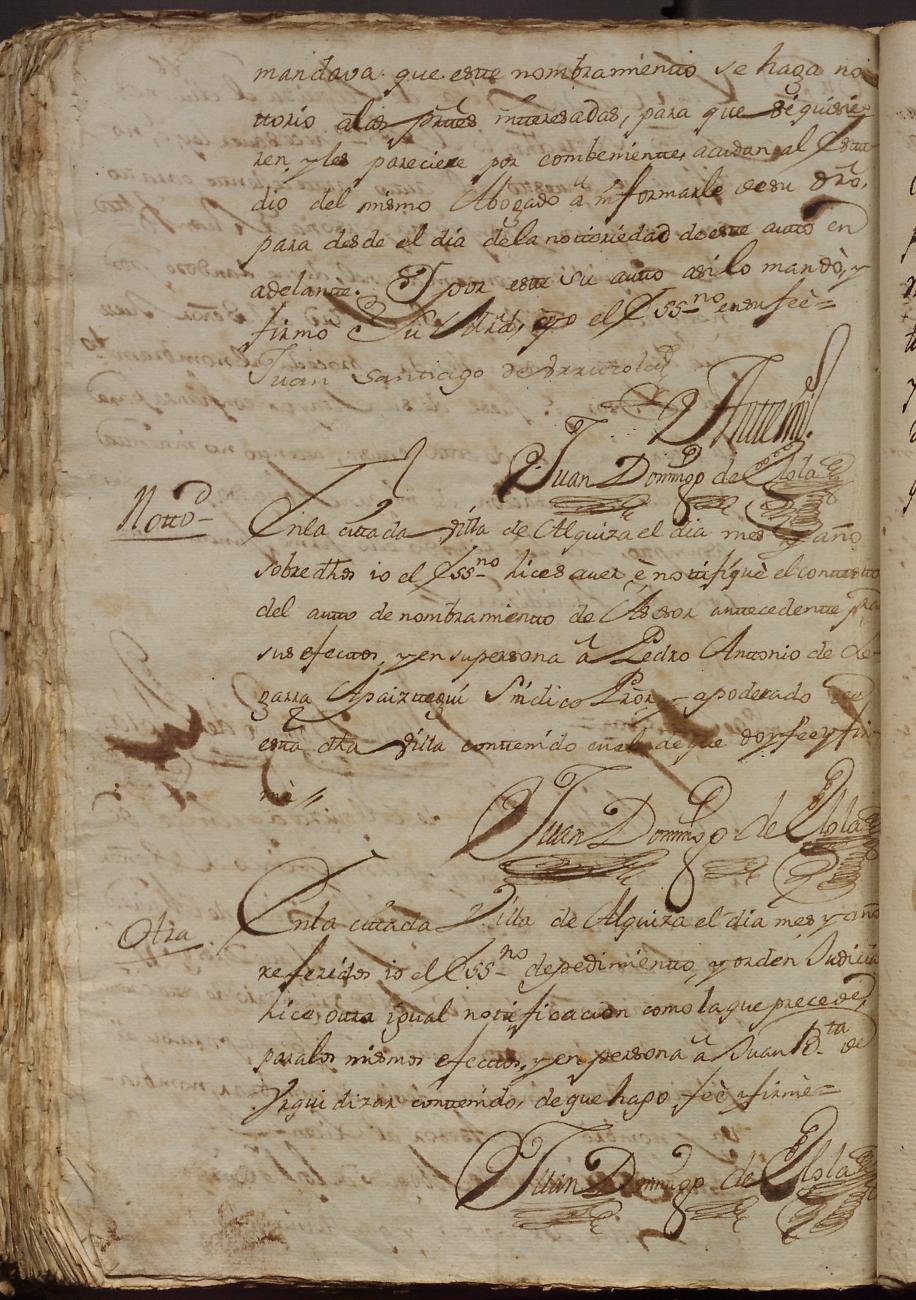 mandava que este nombramiento se haga no
ttorio alas prtes interesadas, para que si quisie-
ren y les pareciere por combeniente, acudan al Estu-
dio del mismo Abogado a informarle de su dro,
para desde el dia dela nottoriedad de este autto en
adelante. Y por este su autto asi lo mandò, y
firmo Su Mrd, e yo el Essno en su feè=
Juan Santiago de
Ante mi
Juan Domingo de Olola
Notto
En la cittada Villa de Alquiza el dia mes y año
sobre dhos io el Essno hice saver, è notifiquè el contexto
del autto de nombramiento de Asesor antecedente pra
sus efectos, y en su persona â Pedro Antonio de Le-
garra Apaizttegui Sindico Pror apoderado de
esta dha Villa contenido en el de que doy fee y fir-
mè //
Juan Domingo de Olola
Otra
En la cittada Villa de Alquiza el dia mes y año
referidos io el Essno de pedimiento, y orden Judicial
hice, otra igual notificacion como la que precede,
para los mismos efectos, y en persona â Juan Bta de
Yrguidizar contenido, de que hago feè y firmè=
Juan Domingo de Olola